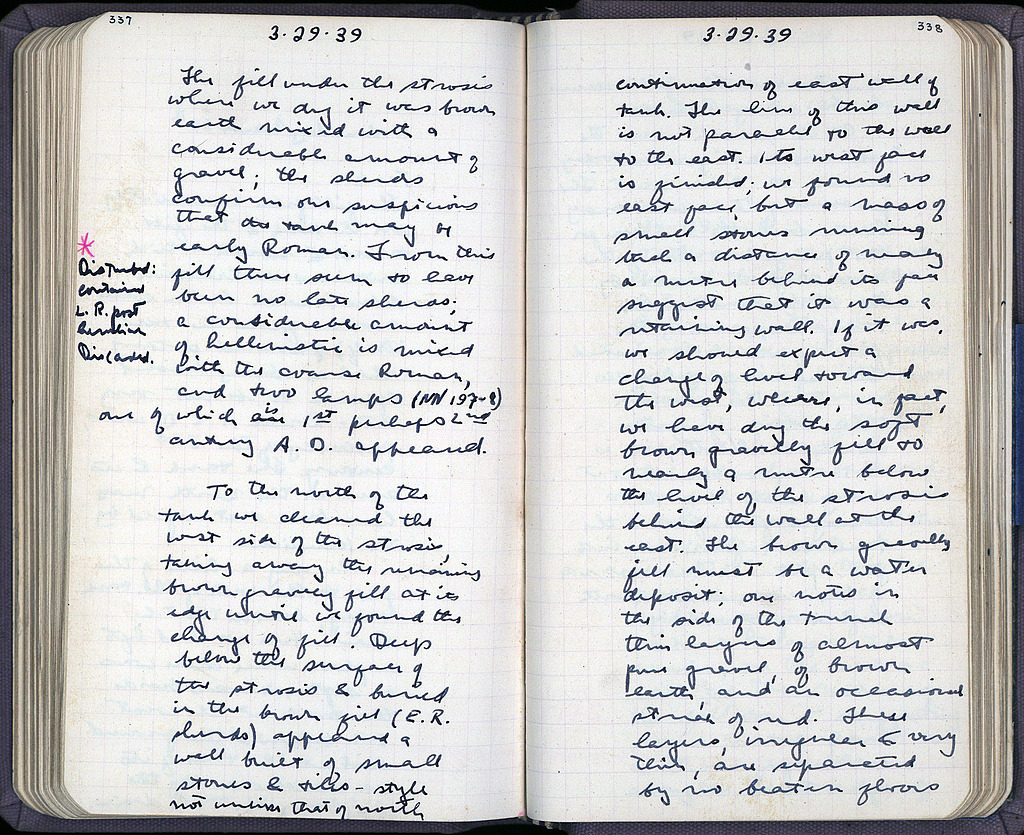 337
3·29·39
The fill under the strosis
where we dug it was brown
earth mixed with a
considerable amount of
gravel; the sherds
confirm our suspicions
that the tank may be
early Roman. From this
fill there seem to have
been no late sherds;
a considerable amount
of hellenistic is mixed
with the coarse Roman,
and two lamps (NN 197-8)
one of which is 1st perhaps 2nd
century A.D. appeared.
*
Disturbed:
contained
L. R. post
Herulian
Discarded.
To the north of the
tank we cleaned the
west side of the strosis,
taking away the remaining
brown gravelly fill at its
edge until we found the
change of fill. Deep
below the surface of
the strosis & buried
in the brown fill (E.R.
sherds) appeared a
wall built of small
stones & tiles - style
not unlike that of north
338
3·29·39
continuation of east wall of
tank. The line of this wall
is not parallel to the wall
to the east. Its west face
is finished; we found no
east face, but a mass of
small stones running
back a distance of nearly
a metre behind its face
suggest that it was a
retaining wall. If it was,
we should expect a
change of level toward
the west, where, in fact,
we have dug the soft
brown gravelly fill to
nearly a metre below
the level of the strosis
behind the wall at the
east. The brown gravelly
fill must be a water
deposit; one notes in
the side of the tunnel
thin layers of almost
pure gravel, of brown
earth and an occasional
streak of red. These
layers, irregular & very
thin, are separated
by no beaten floors